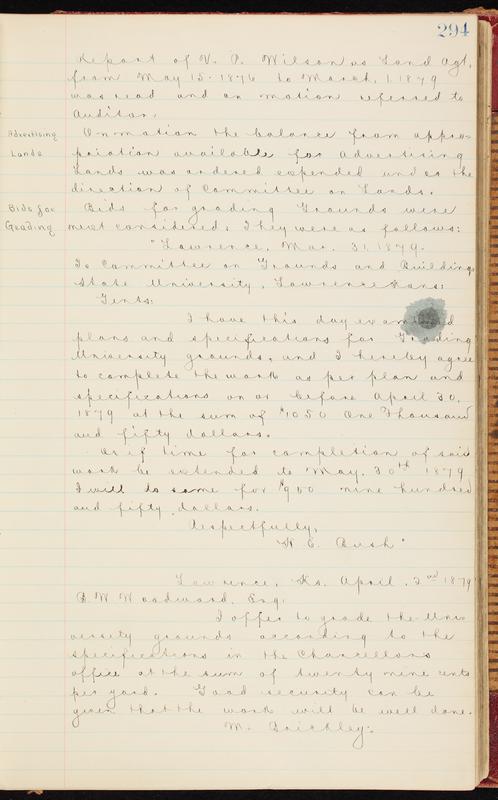 294
Report of V. P. Wilson as Land Agt.
from May 15-1876 to March, 1 1879
was read and on motion referred to
Auditor.
Advertising Lands
On motion the balance from appro-
priation available for advertising
Lands was ordered expended under the
direction of Committee on Lands.
Bids for Grading
Bids for grading Grounds were
next considered; They were as follows:
"Lawrence, Mar. 31, 1879.
To Committee on Grounds and Buildings
State University, Lawrence Kans:
Gents:
I have this day examined
plans and specifications for Grading
University grounds, and I hereby agree
to complete the work as per plan and
specifications on or before April 30,
1879 at the sum of $1050 One Thousand
and fifty dollars.
Or if time for completion of said
work be extended to May, 30th 1879
I will do same for $950 nine hundred
and fifty dollars.
Respectfully,
Bush"
Lawrence, Ks. April, 2nd 1879
B. W. Woodward, Esq.
I offer to grade the Uni-
versity grounds according to the
specifications in the Chancellors
office at the sum of twenty nine cents
per yard. Good security can be
given that the work will be well done.
M. Brickley.